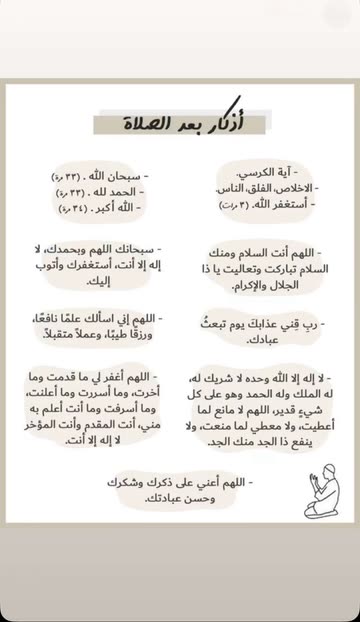 أذكار بعد الصلاة
- آية الكرسي.
- الاخلاص، الفلق، الناس.
- أستغفر الله. (٣ مرات)
- سبحان الله . (٣٣ مرة)
- الحمد لله . (٣٣ مرة)
- الله أكبر . (٣٤ مرة)
- اللهم أنت السلام ومنك
السلام تباركت وتعاليت يا ذا
الجلال والإكرام.
- سبحانك اللهم وبحمدك، لا
إله إلا أنت، أستغفرك وأتوب
إليك.
- ربِ قِني عذابكَ يوم تبعثُ
عبادك.
- اللهم إني اسألك علمًا نافعًا،
ورزقًا طيبًا، وعملاً متقبلاً.
- لا إله إلا الله وحده لا شريك له،
له الملك وله الحمد وهو على كل
شيءٍ قدير، اللهم لا مانع لما
أعطيت، ولا معطي لما منعت، ولا
ينفع ذا الجد منك الجد.
- اللهم أغفر لي ما قدمت وما
أخرت، وما أسررت وما أعلنت،
وما أسرفت وما أنت أعلم به
مني، أنت المقدم وأنت المؤخر
لا إله إلا أنت.
- اللهم أعني على ذكرك وشكرك
وحسن عبادتك.